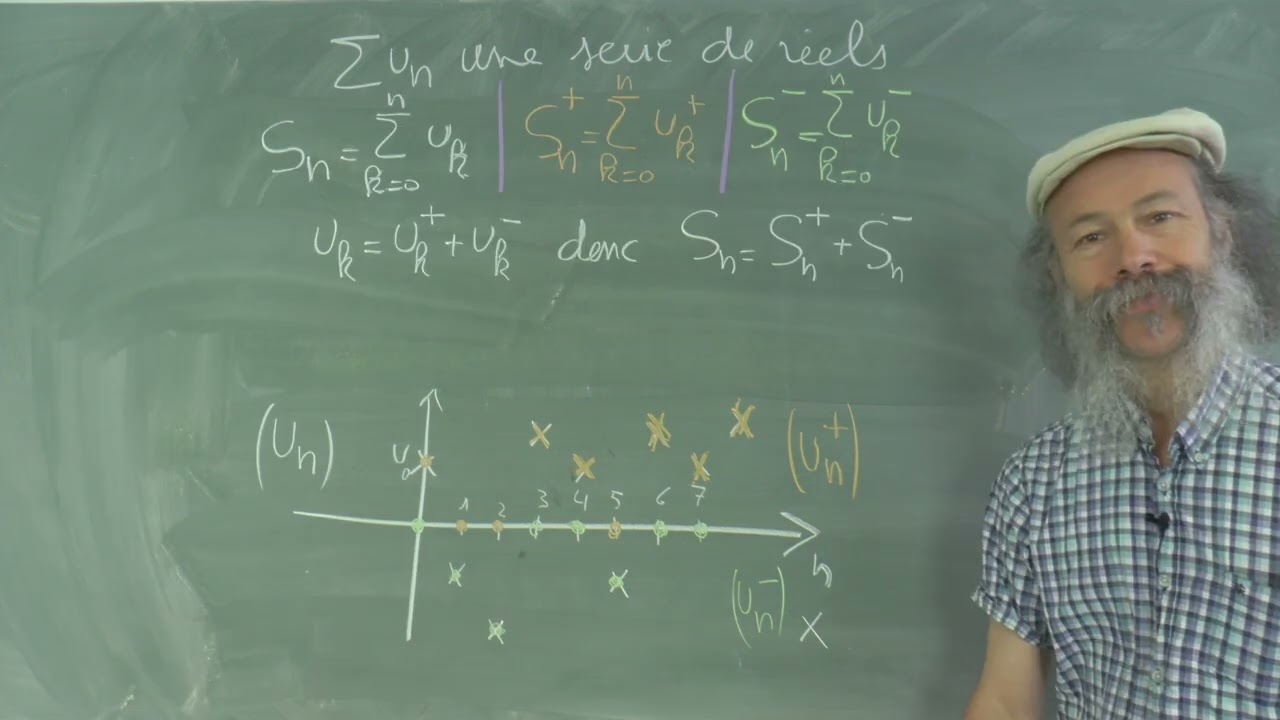 ∑ un une serie de réels
Sn = ∑_{k=0}^{n} uk | Sn⁺ = ∑_{k=0}^{n} uk⁺ | Sn⁻ = ∑_{k=0}^{n} uk⁻
uk = uk⁺ + uk⁻ donc Sn = Sn⁺ + Sn⁻
(Un) u₀ (Un⁺)
1 2 3 4 5 6 7
n
(Un⁻)